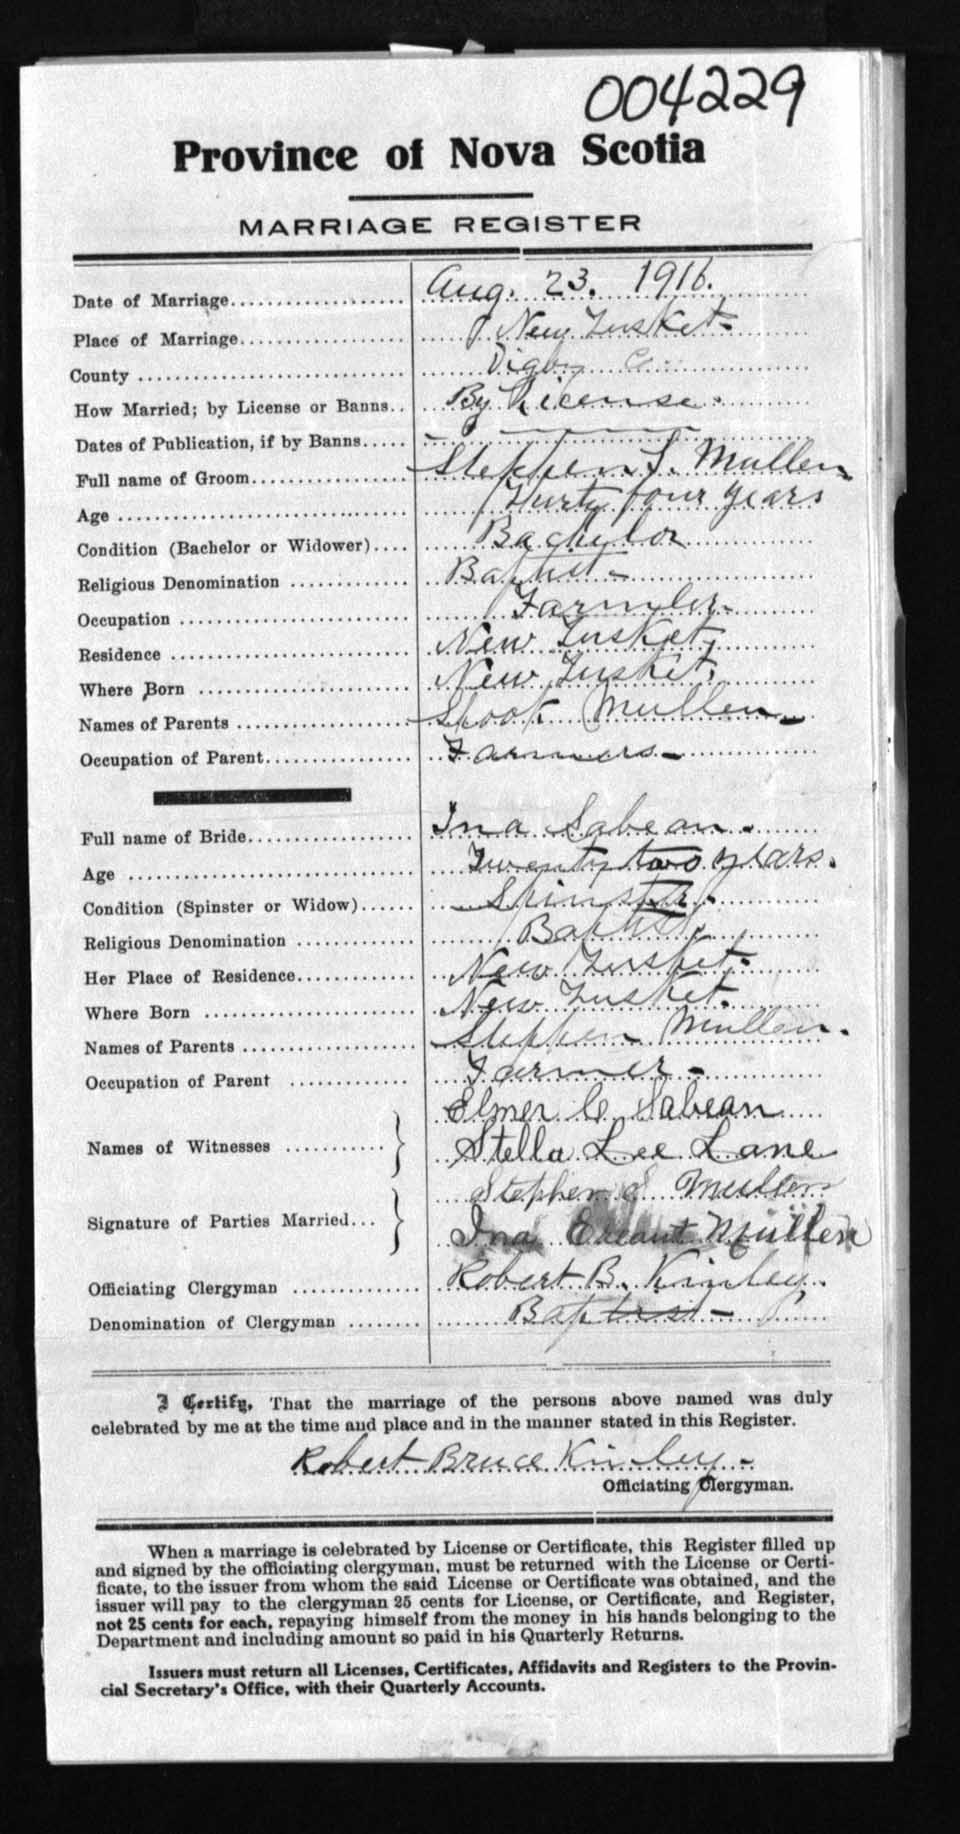 004229
Province of Nova Scotia
MARRIAGE REGISTER
Date of Marriage Aug. 23. 1916.
Place of Marriage New Tusket
County Digby Co
How Married; by License or Banns.. By License.
Dates of Publication, if by Banns
Full name of Groom Stephen S. Mullen
Age Thirty four years
Condition (Bachelor or Widower) Bachelor
Religious Denomination Baptist
Occupation Farmer
Residence New Tusket
Where Born New Tusket
Names of Parents Mullen
Occupation of Parent Farmers
Full name of Bride Ina Sabean.
Age Twenty two years.
Condition (Spinster or Widow) Spinster.
Religious Denomination Baptist
Her Place of Residence New Tusket.
Where Born New Tusket.
Names of Parents Stephen Mullen.
Occupation of Parent Farmer
Elmer C Sabean
Names of Witnesses Stella Lee Lane
Stephen S Mullen
Signature of Parties Married... Ina Mullen
Officiating Clergyman Robert B. Kinley.
Denomination of Clergyman Baptist
I Certify, That the marriage of the persons above named was duly
celebrated by me at the time and place and in the manner stated in this Register.
Robert Bruce Kinley
Officiating Clergyman.
When a marriage is celebrated by License or Certificate, this Register filled up
and signed by the officiating clergyman, must be returned with the License or Certi-
ficate, to the issuer from whom the said License or Certificate was obtained, and the
issuer will pay to the clergyman 25 cents for License, or Certificate, and Register,
not 25 cents for each, repaying himself from the money in his hands belonging to the
Department and including amount so paid in his Quarterly Returns.
Issuers must return all Licenses, Certificates, Affidavits and Registers to the Provin-
cial Secretary's Office, with their Quarterly Accounts.